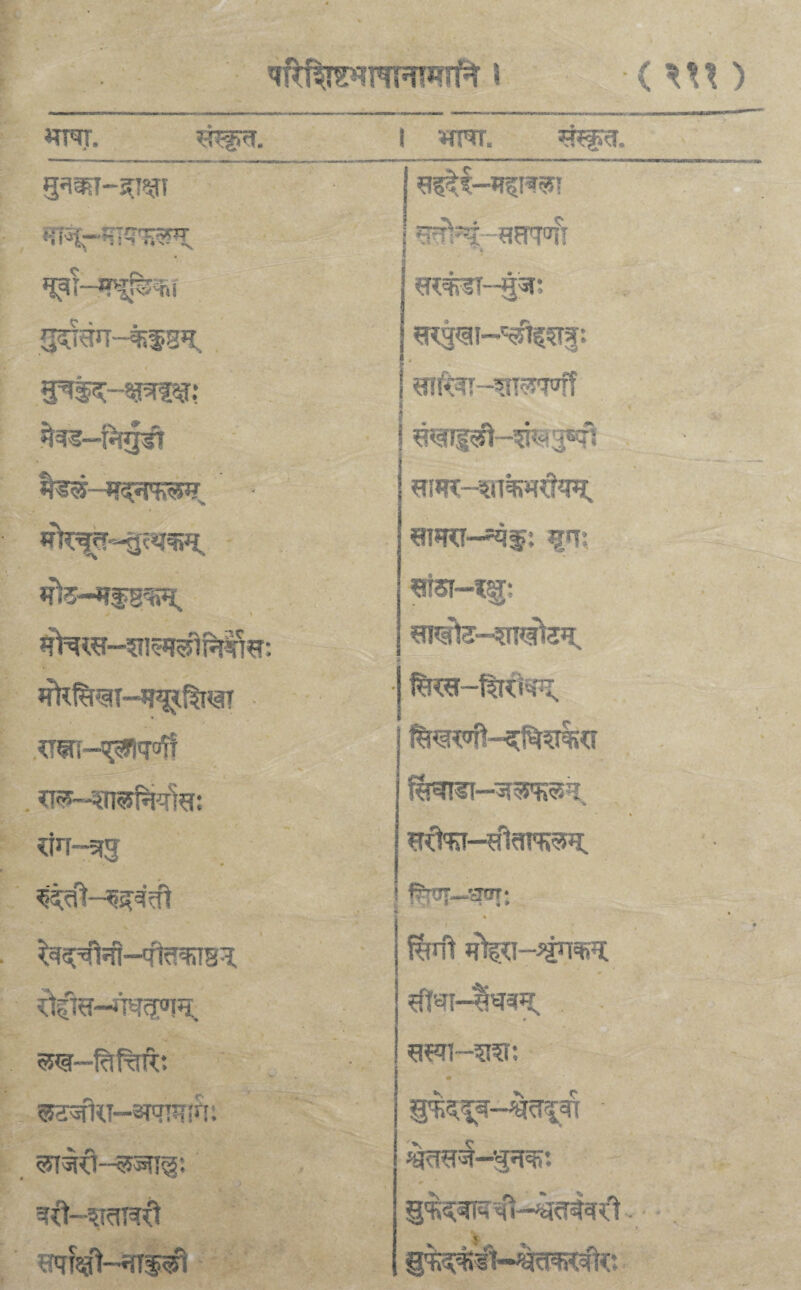 परिशिष्टभाषानामानि । ( २११ )
भाषा. संस्कृत.
मुनक्का-द्राक्षा
माजू-मायफलम्
मूर्वा-मधूलिका
मुर्दासंग-कंकुष्ठम्
मुचकुंद-क्षत्रवृक्षः
मेवड-निर्गुंडी
मैडलं-मदनफलम्
मोरचूत-तुत्थकम्
मोठ-मकुष्ठकम्
मोचरस-शाल्मलीनिर्यासः
मोरशिखा-मयूरशिखा
राल-शालनिर्यासः
रांग-त्रपु
रुदंती-रुद्रवंती
रेवदचीनी-पीतकाष्ठम्
रोहीस-गंधतृणम्
लख-तित्तिरिः
लटजीरा-अपामार्गः
लाजेरी-लज्जालुः
वरी-शतावरी
सर्पाक्षी-नाकुली
। भाषा. संस्कृत.
सहदेई-महाबला
सतोन्यूं-सप्तपर्णी
सरकंडा-मुंजः
सरपुंखा-प्लीहशत्रुः
सारिवा-शालपर्णी
संखाहुली-शंखपुष्पी
सामर-शाकंभरीयम्
सामरा-न्यंकुः मृगः
सांठा-इक्षुः
साखोट-शाखोटम्
सिरस-शिरीषम्
सिखरणी-दधिशर्करा
सिंघाडा-जलफलम्
सरीफा-सीताफलम्
सिण-शणः
सिंगी मोहरा-शृंगकम्
सींधा-सैंधवम्
सस्या-शशः
सुफेददूब-श्वेतदूर्वा
श्वेतसर्ज-धुनकः
सुफेदबावची-श्वेतबर्बरी
सुफेदकंडी-श्वेतकरवीरः